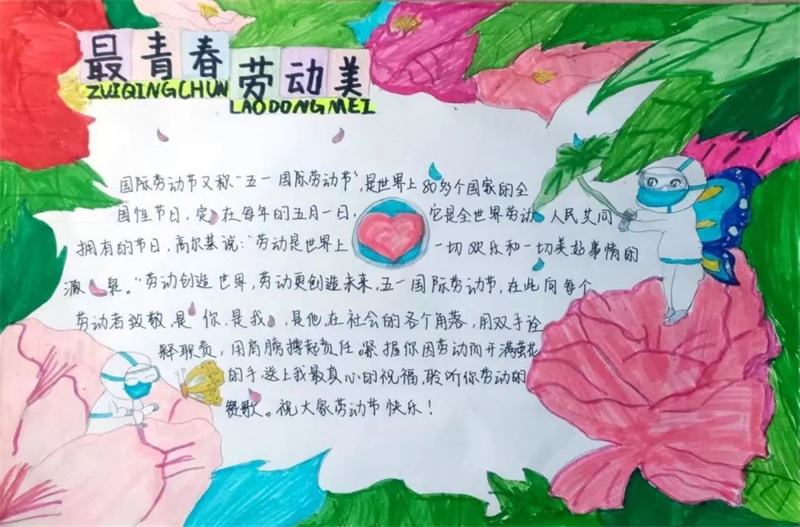 最青春
ZUIQINGCHUN
劳动美
LAODONGMEI
国际劳动节又称"五一国际劳动节",是世界上80多个国家的全
国性节日,定在每年的五月一日,它是全世界劳动人民共同
拥有的节日,高尔基说:"劳动是世界上一切欢乐和一切美好事情的
源泉。"劳动创造世界,劳动更创造未来,五一国际劳动节,在此向每个
劳动者致敬,是你,是我,是他,在社会的各个角落,用双手诠
释职责,用肩膀搏起责任。紧握你因劳动而开满茧花
的手送上我最真心的祝福,聆听你劳动的
赞歌。祝大家劳动节快乐!